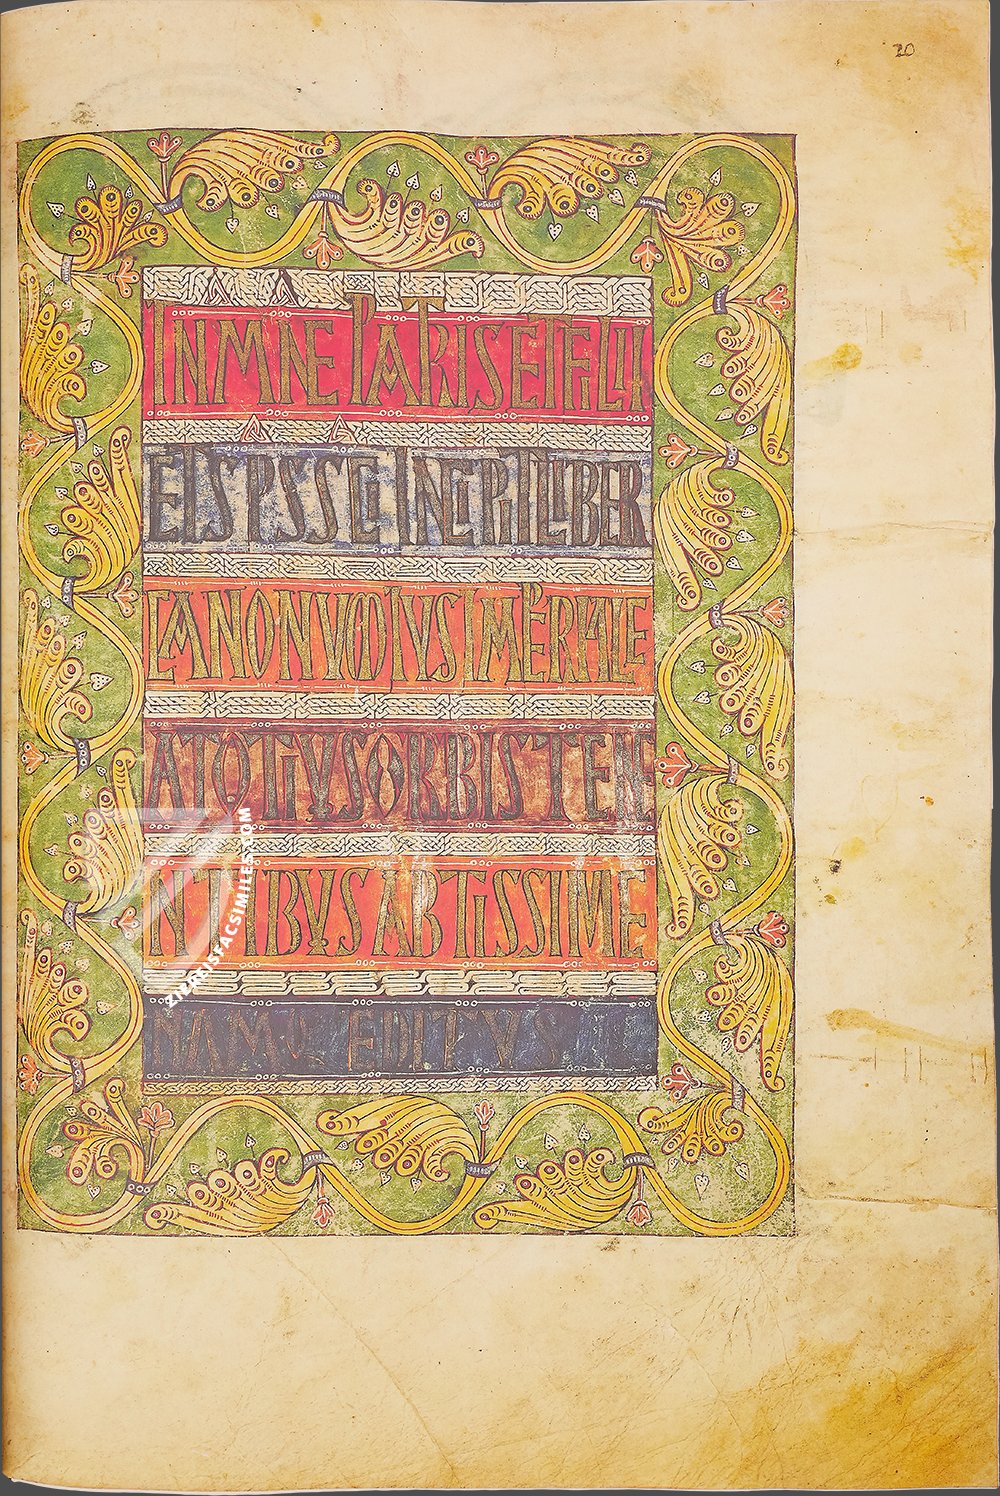 20
INMNE PATRIS ET FILII
ET SPS SCI INCIPIT LIBER
CANONUM TOTIUS
ATOTIUS ORBIS TENE
NTIBUS ABTISSIME
EDITUS
ZIEREISFACSIMILES.COM